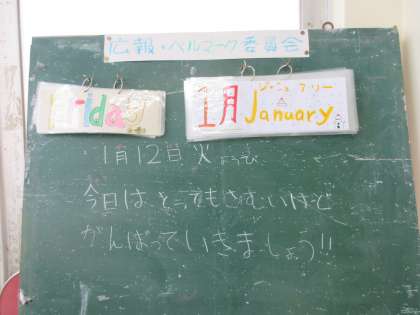 広報・ベルマーク委員会
Friday
ジャニュアリー
1月 January
1月12日 火ようび
今日は とってもさむいけど
がんばっていきましょう!!